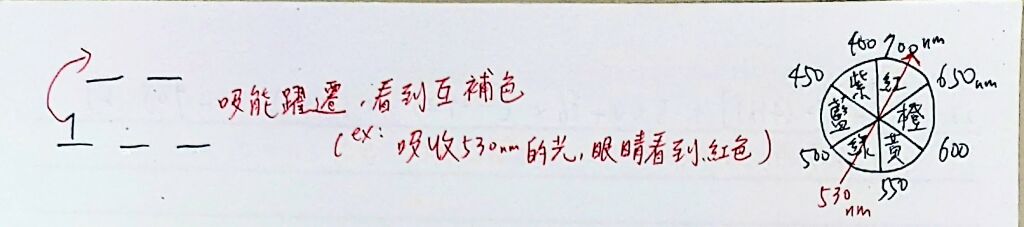 吸能躍遷,看到互補色
(ex: 吸收530nm的光,眼睛看到紅色)
400 700nm
450 紫 紅 650nm
藍 橙
500 綠 黃 600
530nm 550